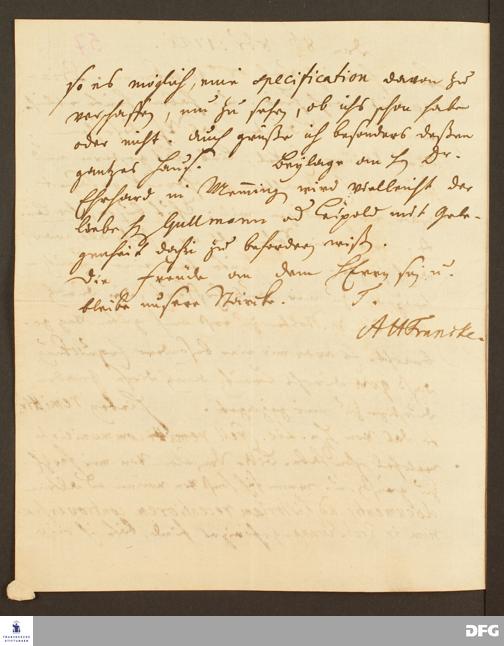 so es möglich, eine specification davon zu
verschaffen, um zu sehen, ob ichs schon habe
oder nicht. Auch grüße ich besonders deßen
gantzes Hauß. Beylage an H Dr.
Ehrhard in Memming wird vielleicht der
liebe H Gullmann od Leipold mit Gele-
genheit dahin zu befordern wißen.
Die Freude an dem HErrn sey u.
bleibe unsere Stärcke. T.
AHFrancke.
FRANCKESCHE
STIFTUNGEN
DFG